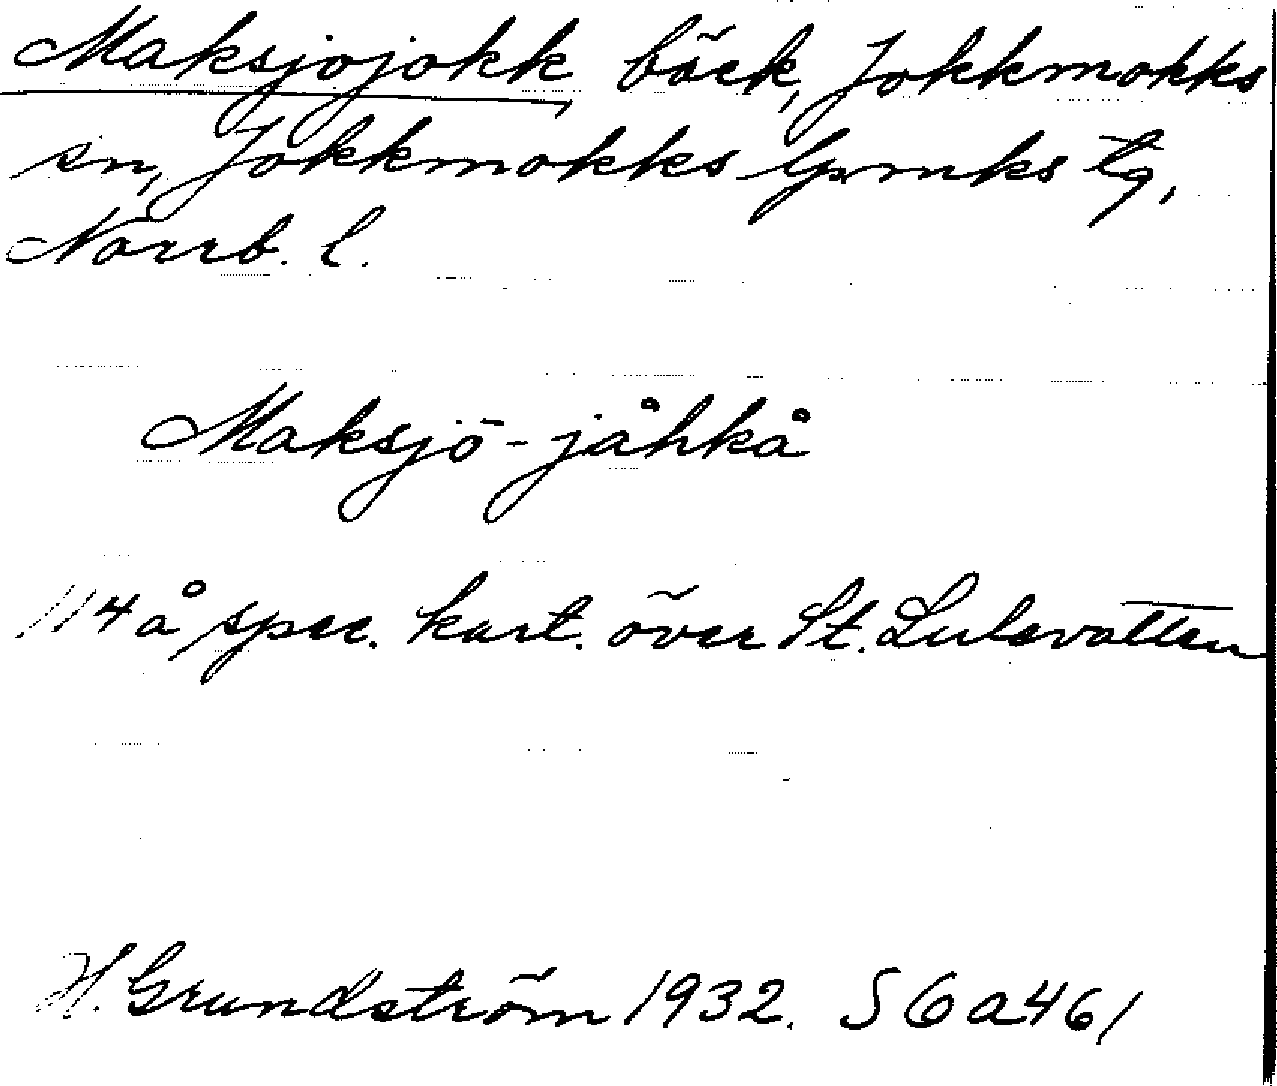 Maksjojokk, bäck, Jokkmokks
sn, Jokkmokks lpmks tg,
Norrb. l.
Maksjō-jåhkå
114 å spec. kart. över St. Lulevatten
H. Grundström 1932. S 6 a 461